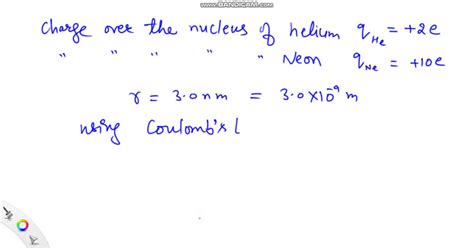 WWW.BANDICAM.COM
Charge over the nucleus of helium q_He = +2e
" " " " " Neon q_Ne = +10e
r = 3.0 nm = 3.0 × 10^-9 m
using Coulomb's L